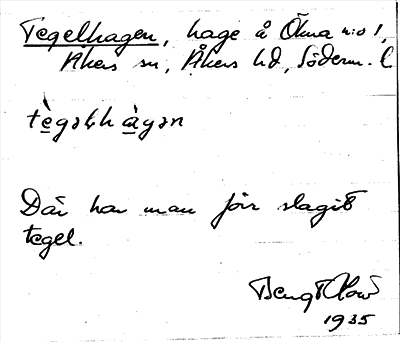 Tegelhagen, hage å Ökna n:o 1,
Åkers sn, Åkers hd, Söderm. l
tègəlhàgən
Där har man förr slagit
tegel.
Bengt
1935